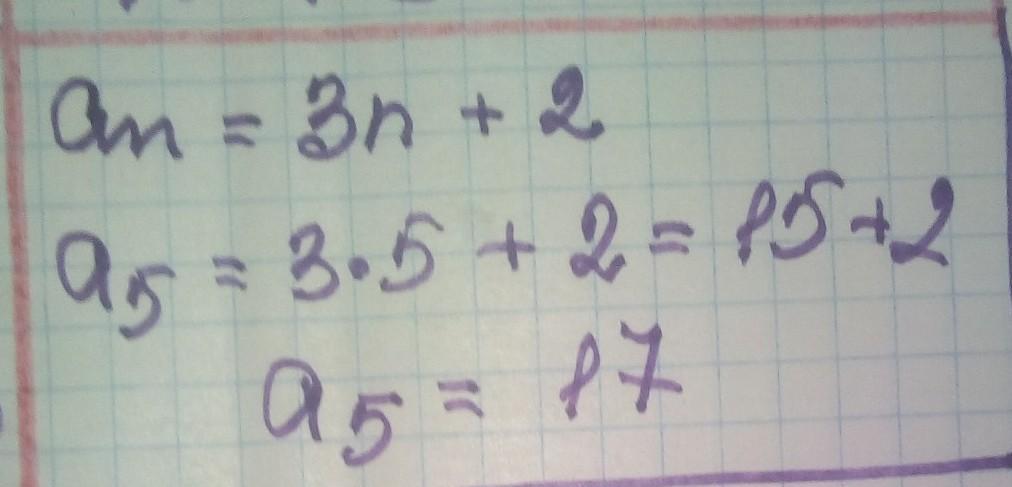 an = 3n + 2
a₅ = 3·5 + 2 = 15+2
a₅ = 17